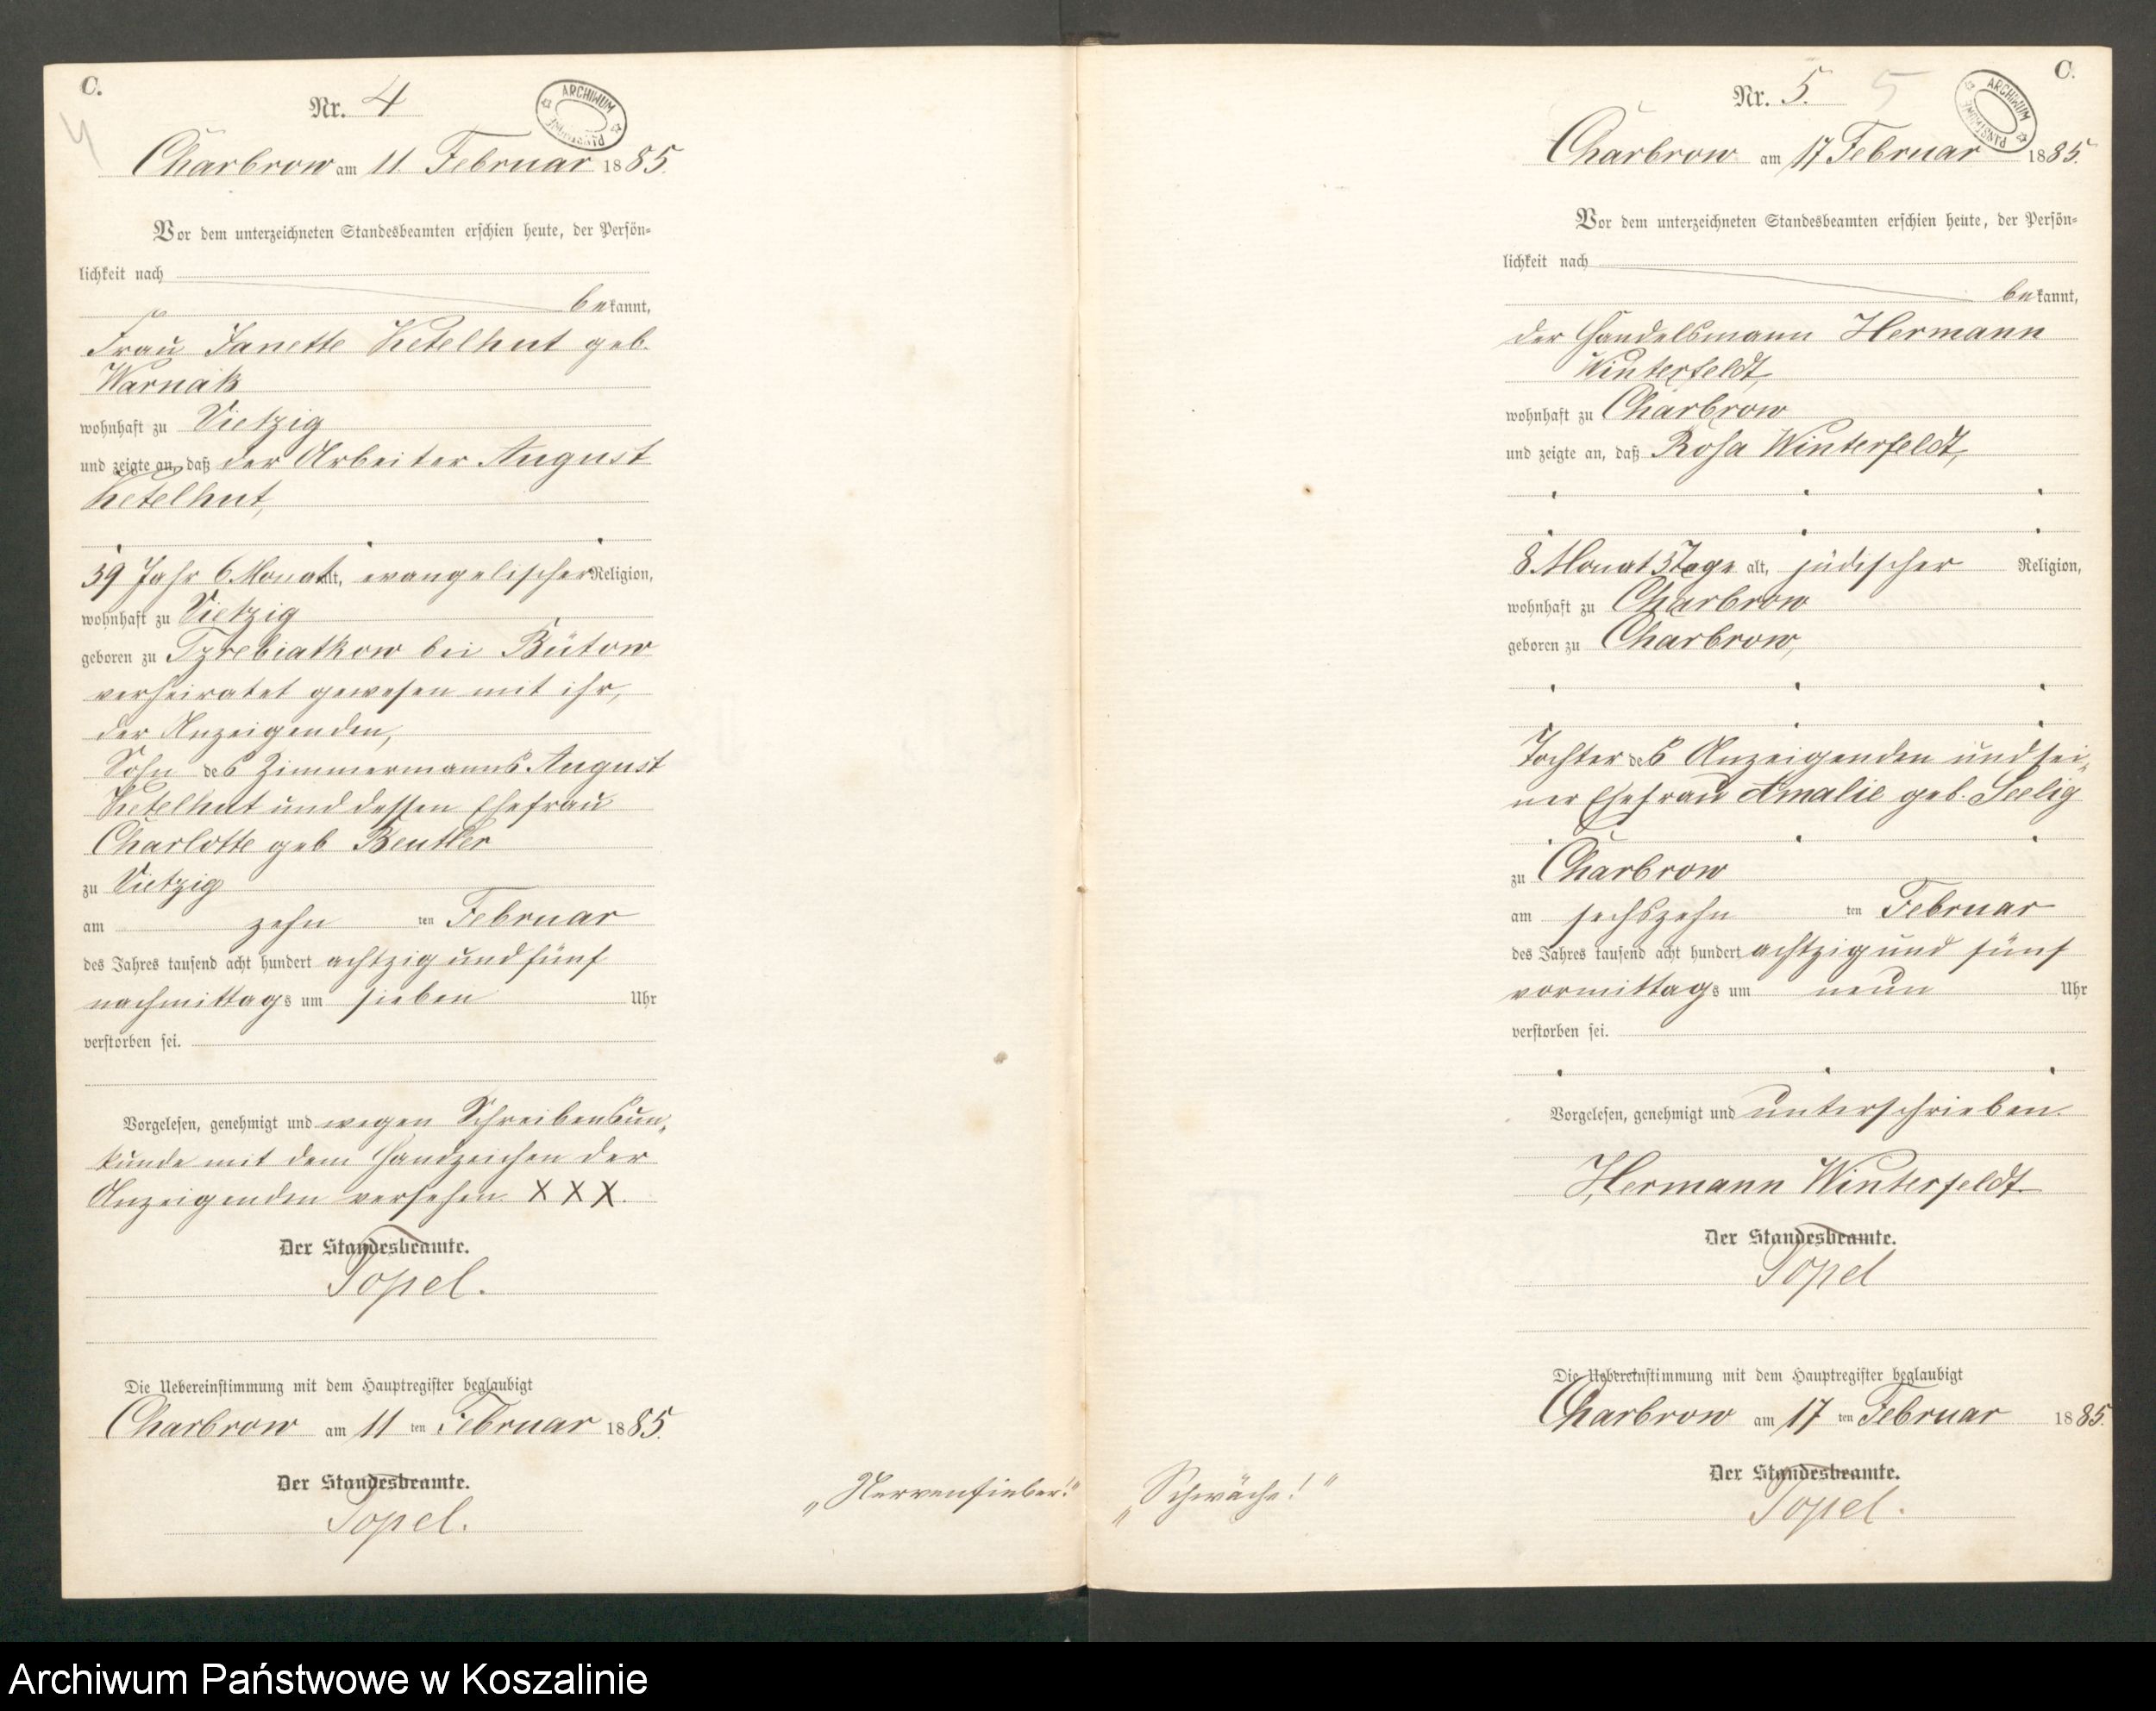 C.
4
Nr. 4
ARCHIWUM
PAŃSTWOWE
Charbrow am 11 Februar 1885.
Vor dem unterzeichneten Standesbeamten erschien heute, der Persön=
lichkeit nach
bekannt,
Frau Janette Ketelhut geb.
Warnak
wohnhaft zu Vietzig
und zeigte an, daß der Arbeiter August
Ketelhut,
59 Jahr 6 Monat alt, evangelischer Religion,
wohnhaft zu Vietzig
geboren zu Tzrebiatkow bei Bütow
verheiratet gewesen mit ihr,
der Anzeigenden,
Sohn des Zimmermanns August
Ketelhut und dessen Ehefrau
Charlotte geb Beutler
zu Vietzig
am zehn ten Februar
des Jahres tausend acht hundert achtzig und fünf
nachmittags um sieben Uhr
verstorben sei.
Vorgelesen, genehmigt und wegen Schreibensun=
kunde mit dem Handzeichen der
Anzeigenden versehen X X X.
Der Standesbeamte.
Popel.
Die Uebereinstimmung mit dem Hauptregister beglaubigt
Charbrow am 11 ten Februar 1885.
Der Standesbeamte.
Popel.
„Nervenfieber!"
C.
Nr. 5. 5
ARCHIWUM
PAŃSTWOWE
Charbrow am 17 Februar 1885.
Vor dem unterzeichneten Standesbeamten erschien heute, der Persön=
lichkeit nach
bekannt,
der Handelsmann Hermann
Winterfeldt,
wohnhaft zu Charbrow
und zeigte an, daß Rosa Winterfeldt,
8 Monat 5 Tage alt, jüdischer Religion,
wohnhaft zu Charbrow
geboren zu Charbrow,
Tochter des Anzeigenden und sei=
ner Ehefrau Amalie geb. Seelig
zu Charbrow
am sechszehn ten Februar
des Jahres tausend acht hundert achtzig und fünf
vormittags um neun Uhr
verstorben sei.
Vorgelesen, genehmigt und unterschrieben.
Hermann Winterfeldt.
Der Standesbeamte.
Popel
Die Uebereinstimmung mit dem Hauptregister beglaubigt
Charbrow am 17 ten Februar 1885.
Der Standesbeamte.
Popel.
„Schwäche!"
Archiwum Państwowe w Koszalinie